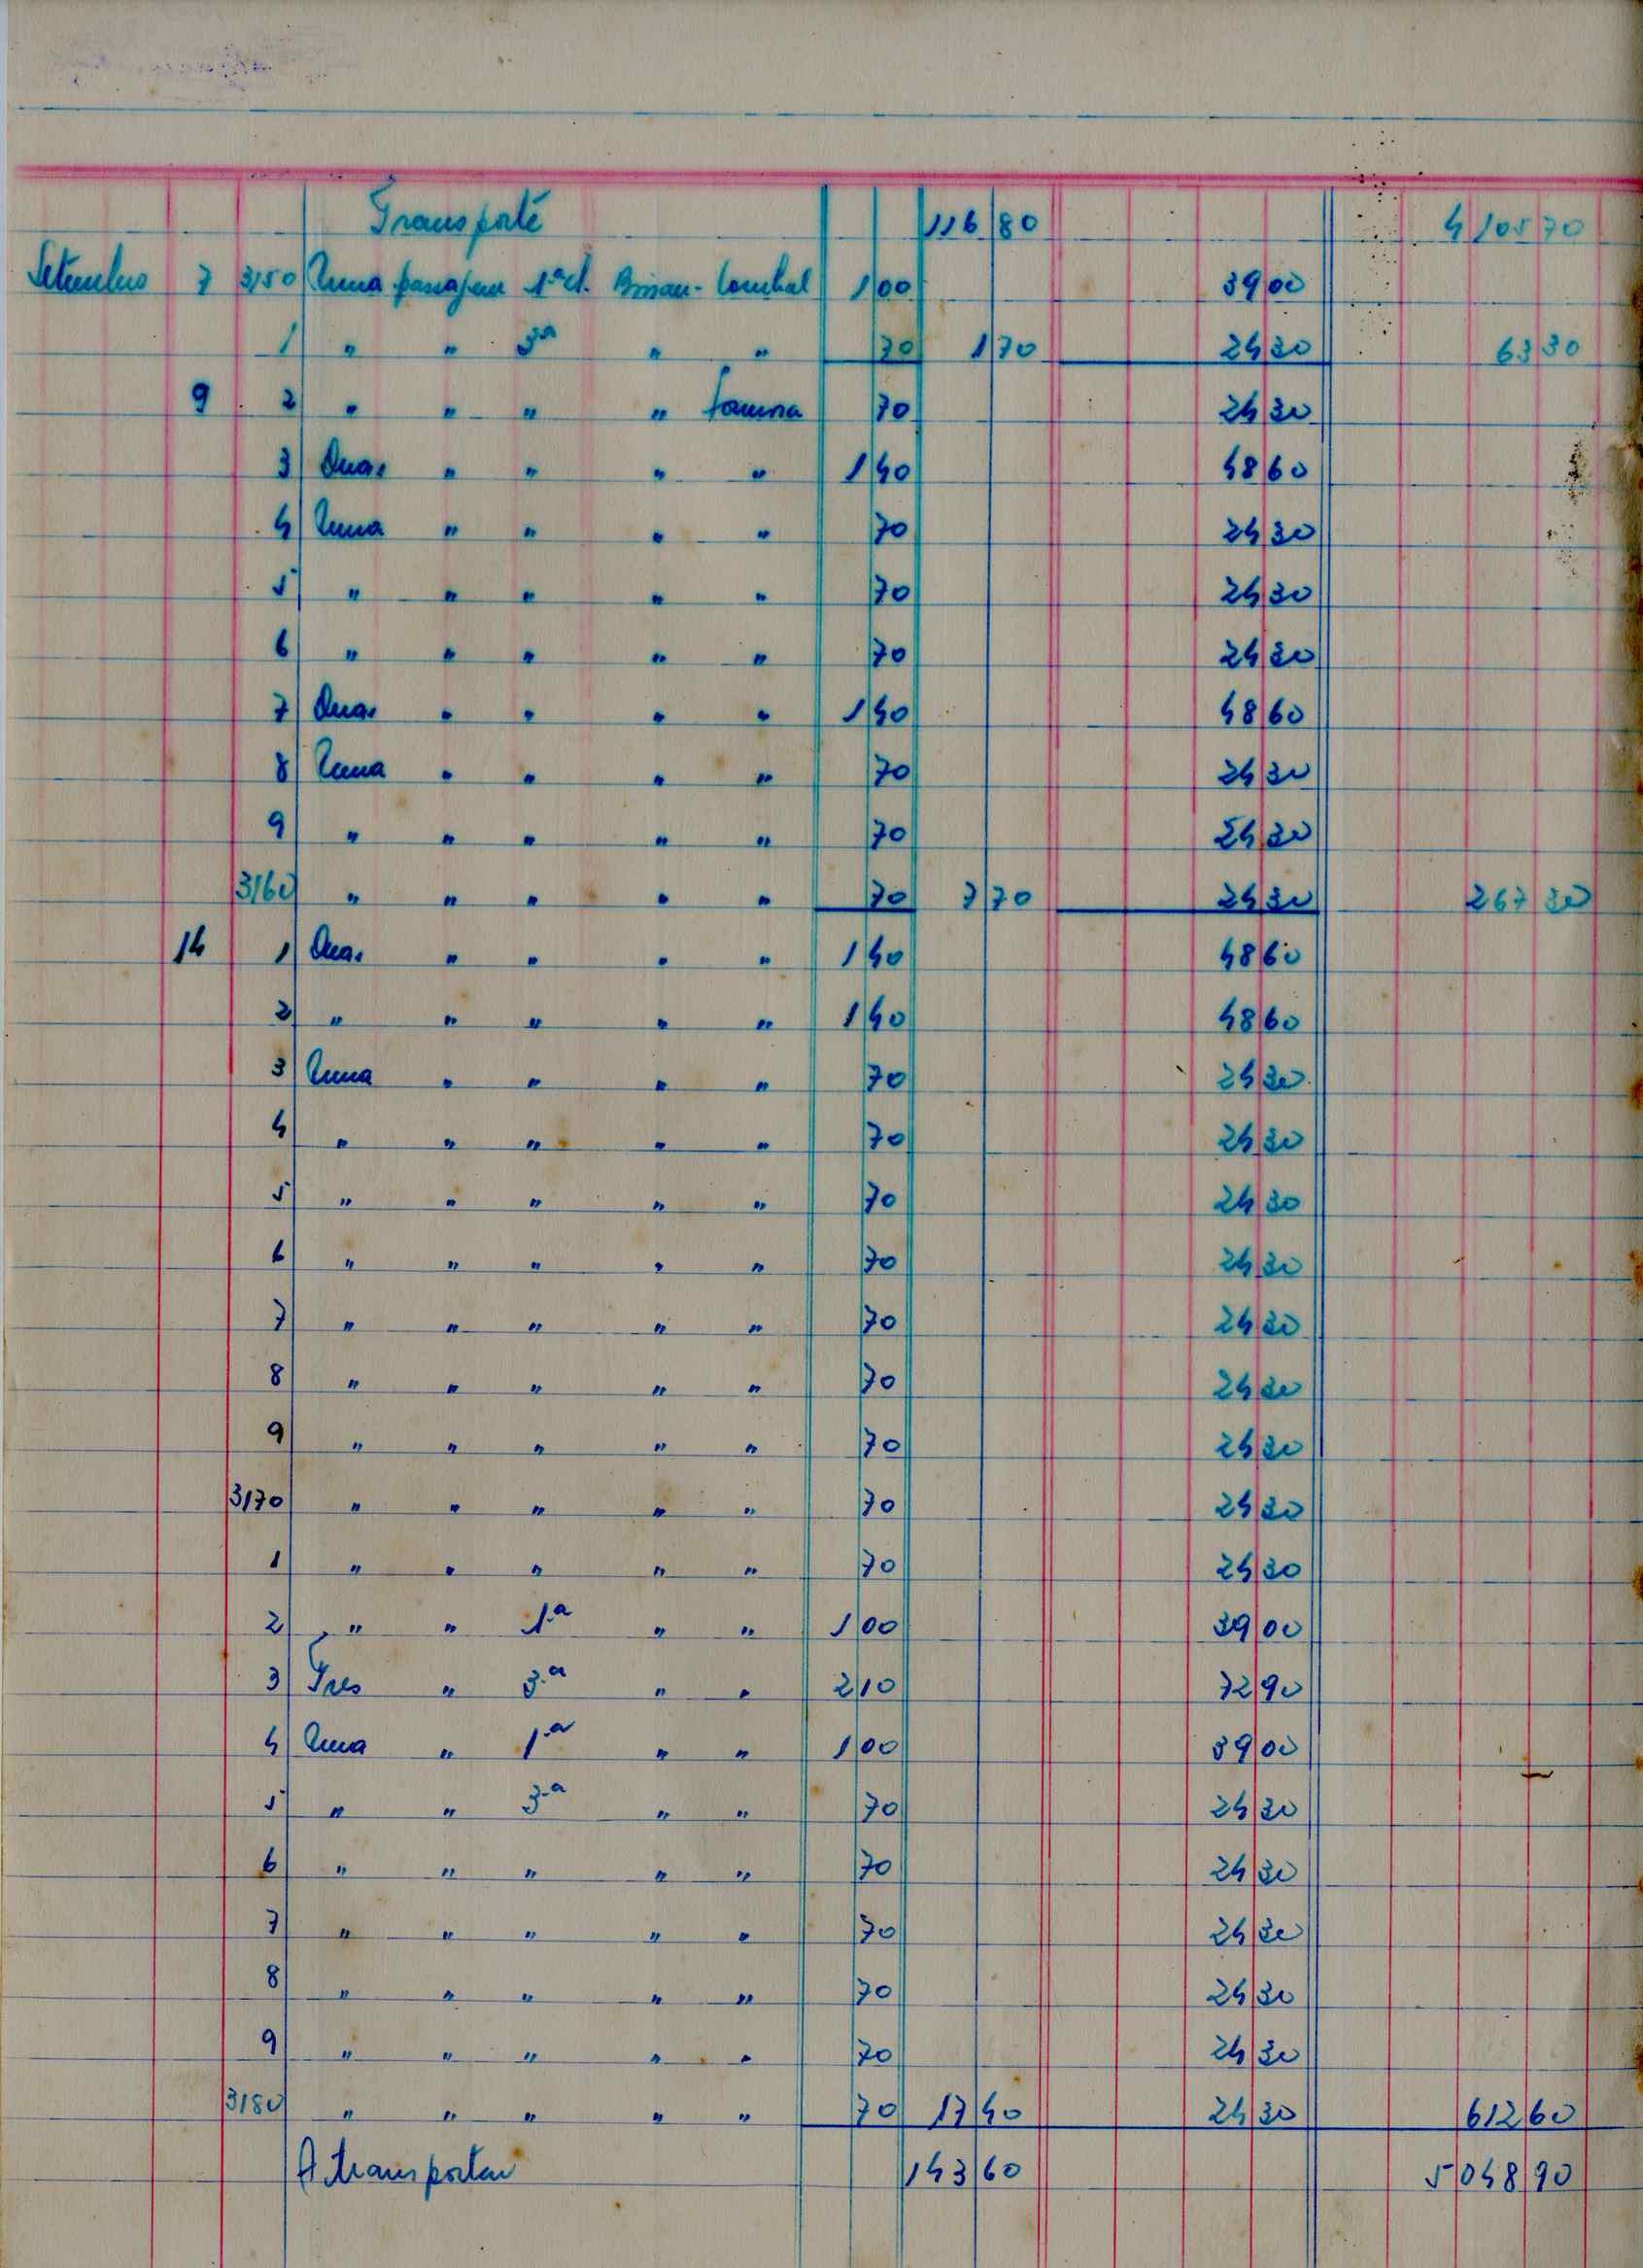 Transporte 116 80 4 105 70
Setembro 7 3150 Uma passagem 1.ª cl. Bissau - 1 00 39 00
1 " " 3ª " " 70 1 70 24 30 63 30
9 2 " " " " 70 24 30
3 Duas " " " " 1 40 48 60
4 Uma " " " " 70 24 30
5 " " " " " 70 24 30
6 " " " " " 70 24 30
7 Duas " " " " 1 40 48 60
8 Uma " " " " 70 24 30
9 " " " " " 70 24 30
3160 " " " " " 70 7 70 24 30 267 30
14 1 Duas " " " " 1 40 48 60
2 " " " " " 1 40 48 60
3 Uma " " " " 70 24 30
4 " " " " " 70 24 30
5 " " " " " 70 24 30
6 " " " " " 70 24 30
7 " " " " " 70 24 30
8 " " " " " 70 24 30
9 " " " " " 70 24 30
3170 " " " " " 70 24 30
1 " " " " " 70 24 30
2 " " 1.ª " " 1 00 39 00
3 Tres " 3.ª " " 2 10 72 90
4 Uma " 1ª " " 1 00 39 00
5 " " 3.ª " " 70 24 30
6 " " " " " 70 24 30
7 " " " " " 70 24 30
8 " " " " " 70 24 30
9 " " " " " 70 24 30
3180 " " " " " 70 17 40 24 30 612 60
A transportar 143 60 5 048 90